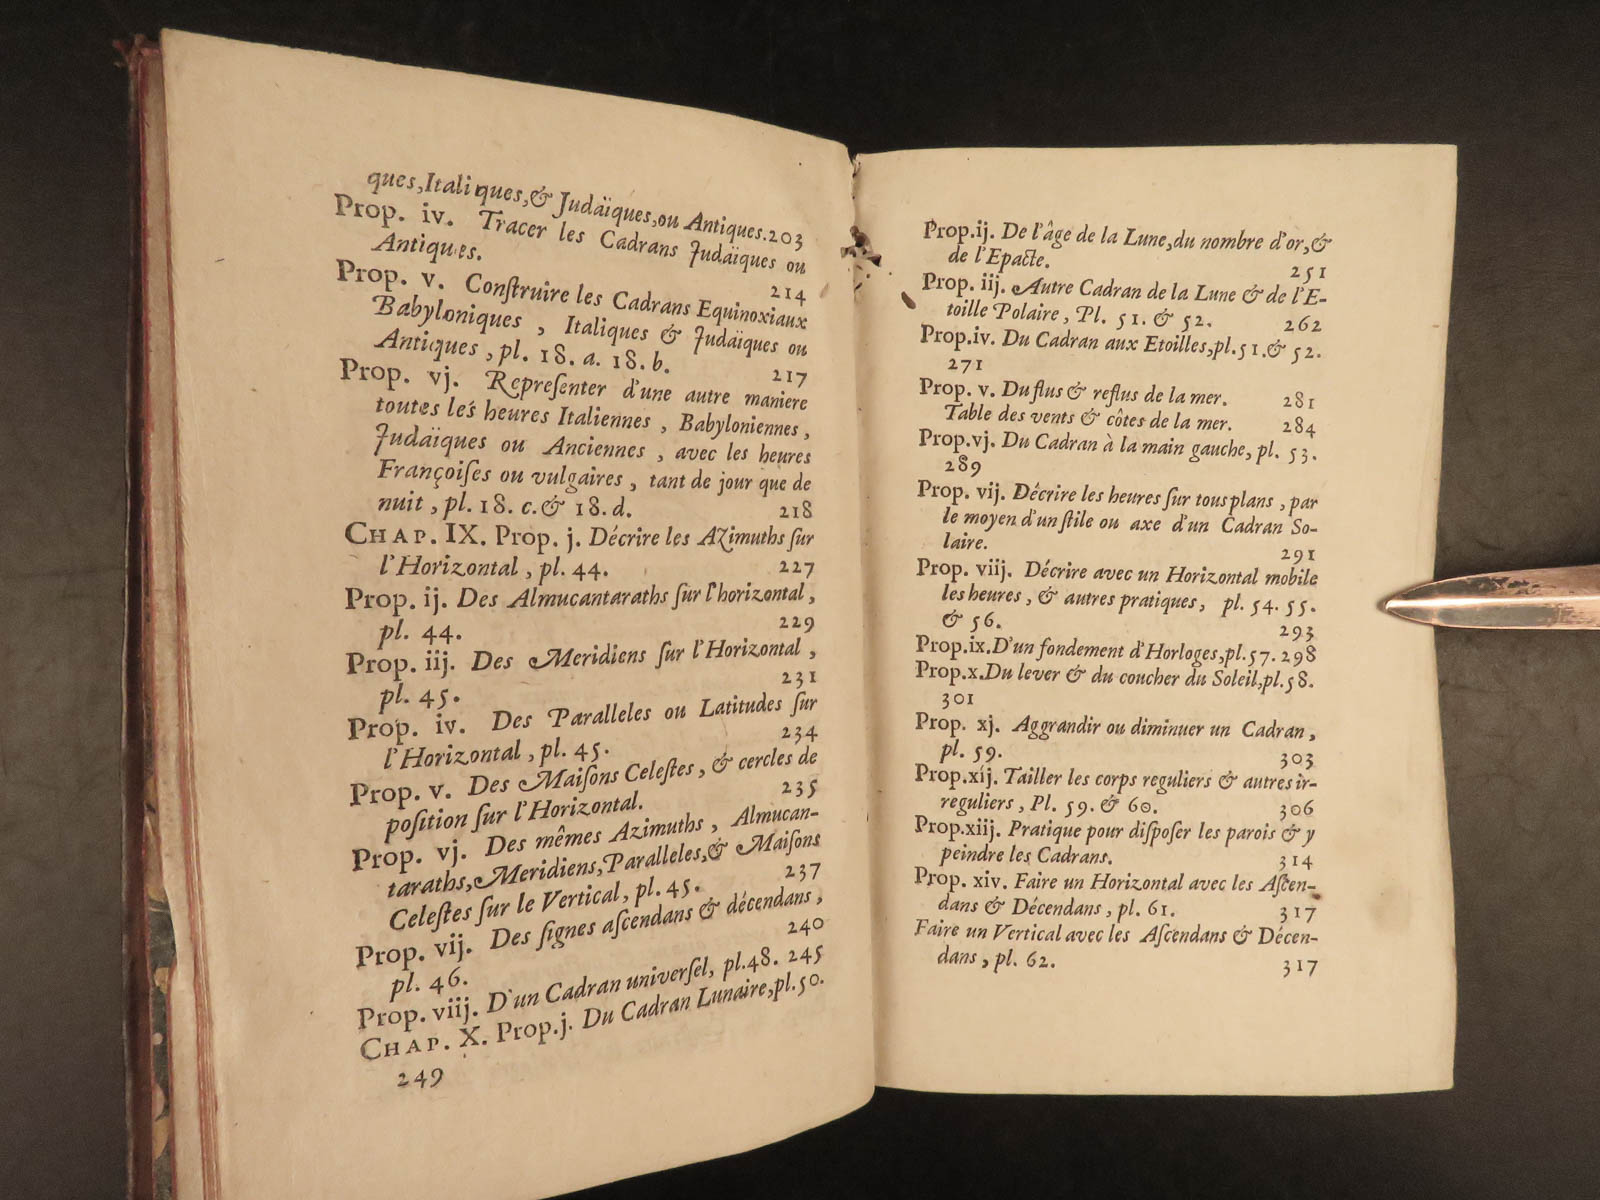 ques, Italiques, & Judaïques, ou Antiques. 203
Prop. iv. Tracer les Cadrans Judaïques ou
Antiques. 214
Prop. v. Conſtruire les Cadrans Equinoxiaux
Babyloniques, Italiques & Judaïques ou
Antiques, pl. 18. a. 18. b. 217
Prop. vj. Repreſenter d'une autre maniere
toutes les heures Italiennes, Babyloniennes,
Judaïques ou Anciennes, avec les heures
Françoiſes ou vulgaires, tant de jour que de
nuit, pl. 18. c. & 18. d. 218
CHAP. IX. Prop. j. Décrire les Azimuths ſur
l'Horizontal, pl. 44. 227
Prop. ij. Des Almucantaraths ſur l'horizontal,
pl. 44. 229
Prop. iij. Des Meridiens ſur l'Horizontal,
pl. 45. 231
Prop. iv. Des Paralleles ou Latitudes ſur
l'Horizontal, pl. 45. 234
Prop. v. Des Maiſons Celeſtes, & cercles de
poſition ſur l'Horizontal. 235
Prop. vj. Des mêmes Azimuths, Almucan-
taraths, Meridiens, Paralleles, & Maiſons
Celeſtes ſur le Vertical, pl. 45. 237
Prop. vij. Des ſignes aſcendans & décendans,
pl. 46. 240
Prop. viij. D'un Cadran univerſel, pl. 48. 245
CHAP. X. Prop. j. Du Cadran Lunaire, pl. 50.
249
Prop. ij. De l'âge de la Lune, du nombre d'or, &
de l'Epacte. 251
Prop. iij. Autre Cadran de la Lune & de l'E-
toille Polaire, Pl. 51. & 52. 262
Prop. iv. Du Cadran aux Etoilles, pl. 51. & 52.
271
Prop. v. Du flus & reflus de la mer. 281
Table des vents & côtes de la mer. 284
Prop. vj. Du Cadran à la main gauche, pl. 53.
289
Prop. vij. Décrire les heures ſur tous plans, par
le moyen d'un ſtile ou axe d'un Cadran So-
laire. 291
Prop. viij. Décrire avec un Horizontal mobile
les heures, & autres pratiques, pl. 54. 55.
& 56. 293
Prop. ix. D'un fondement d'Horloges, pl. 57. 298
Prop. x. Du lever & du coucher du Soleil, pl. 58.
301
Prop. xj. Aggrandir ou diminuer un Cadran,
pl. 59. 303
Prop. xij. Tailler les corps reguliers & autres ir-
reguliers, Pl. 59. & 60. 306
Prop. xiij. Pratique pour diſpoſer les parois & y
peindre les Cadrans. 314
Prop. xiv. Faire un Horizontal avec les Aſcen-
dans & Décendans, pl. 61. 317
Faire un Vertical avec les Aſcendans & Décen-
dans, pl. 62. 317